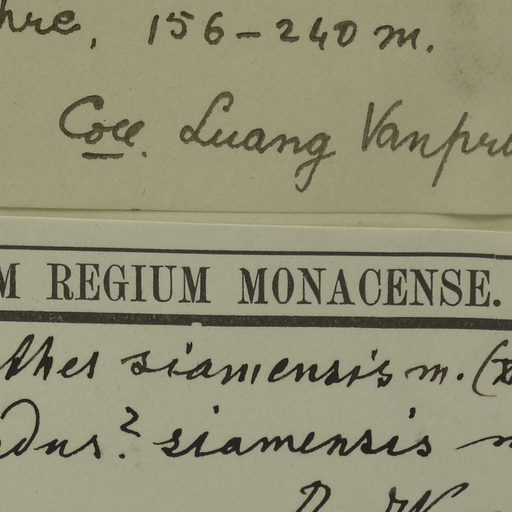 hre, 156-240 m.
Coll. Luang Vanpru
M REGIUM MONACENSE.
thes siamensis m. (
dus? siamensis